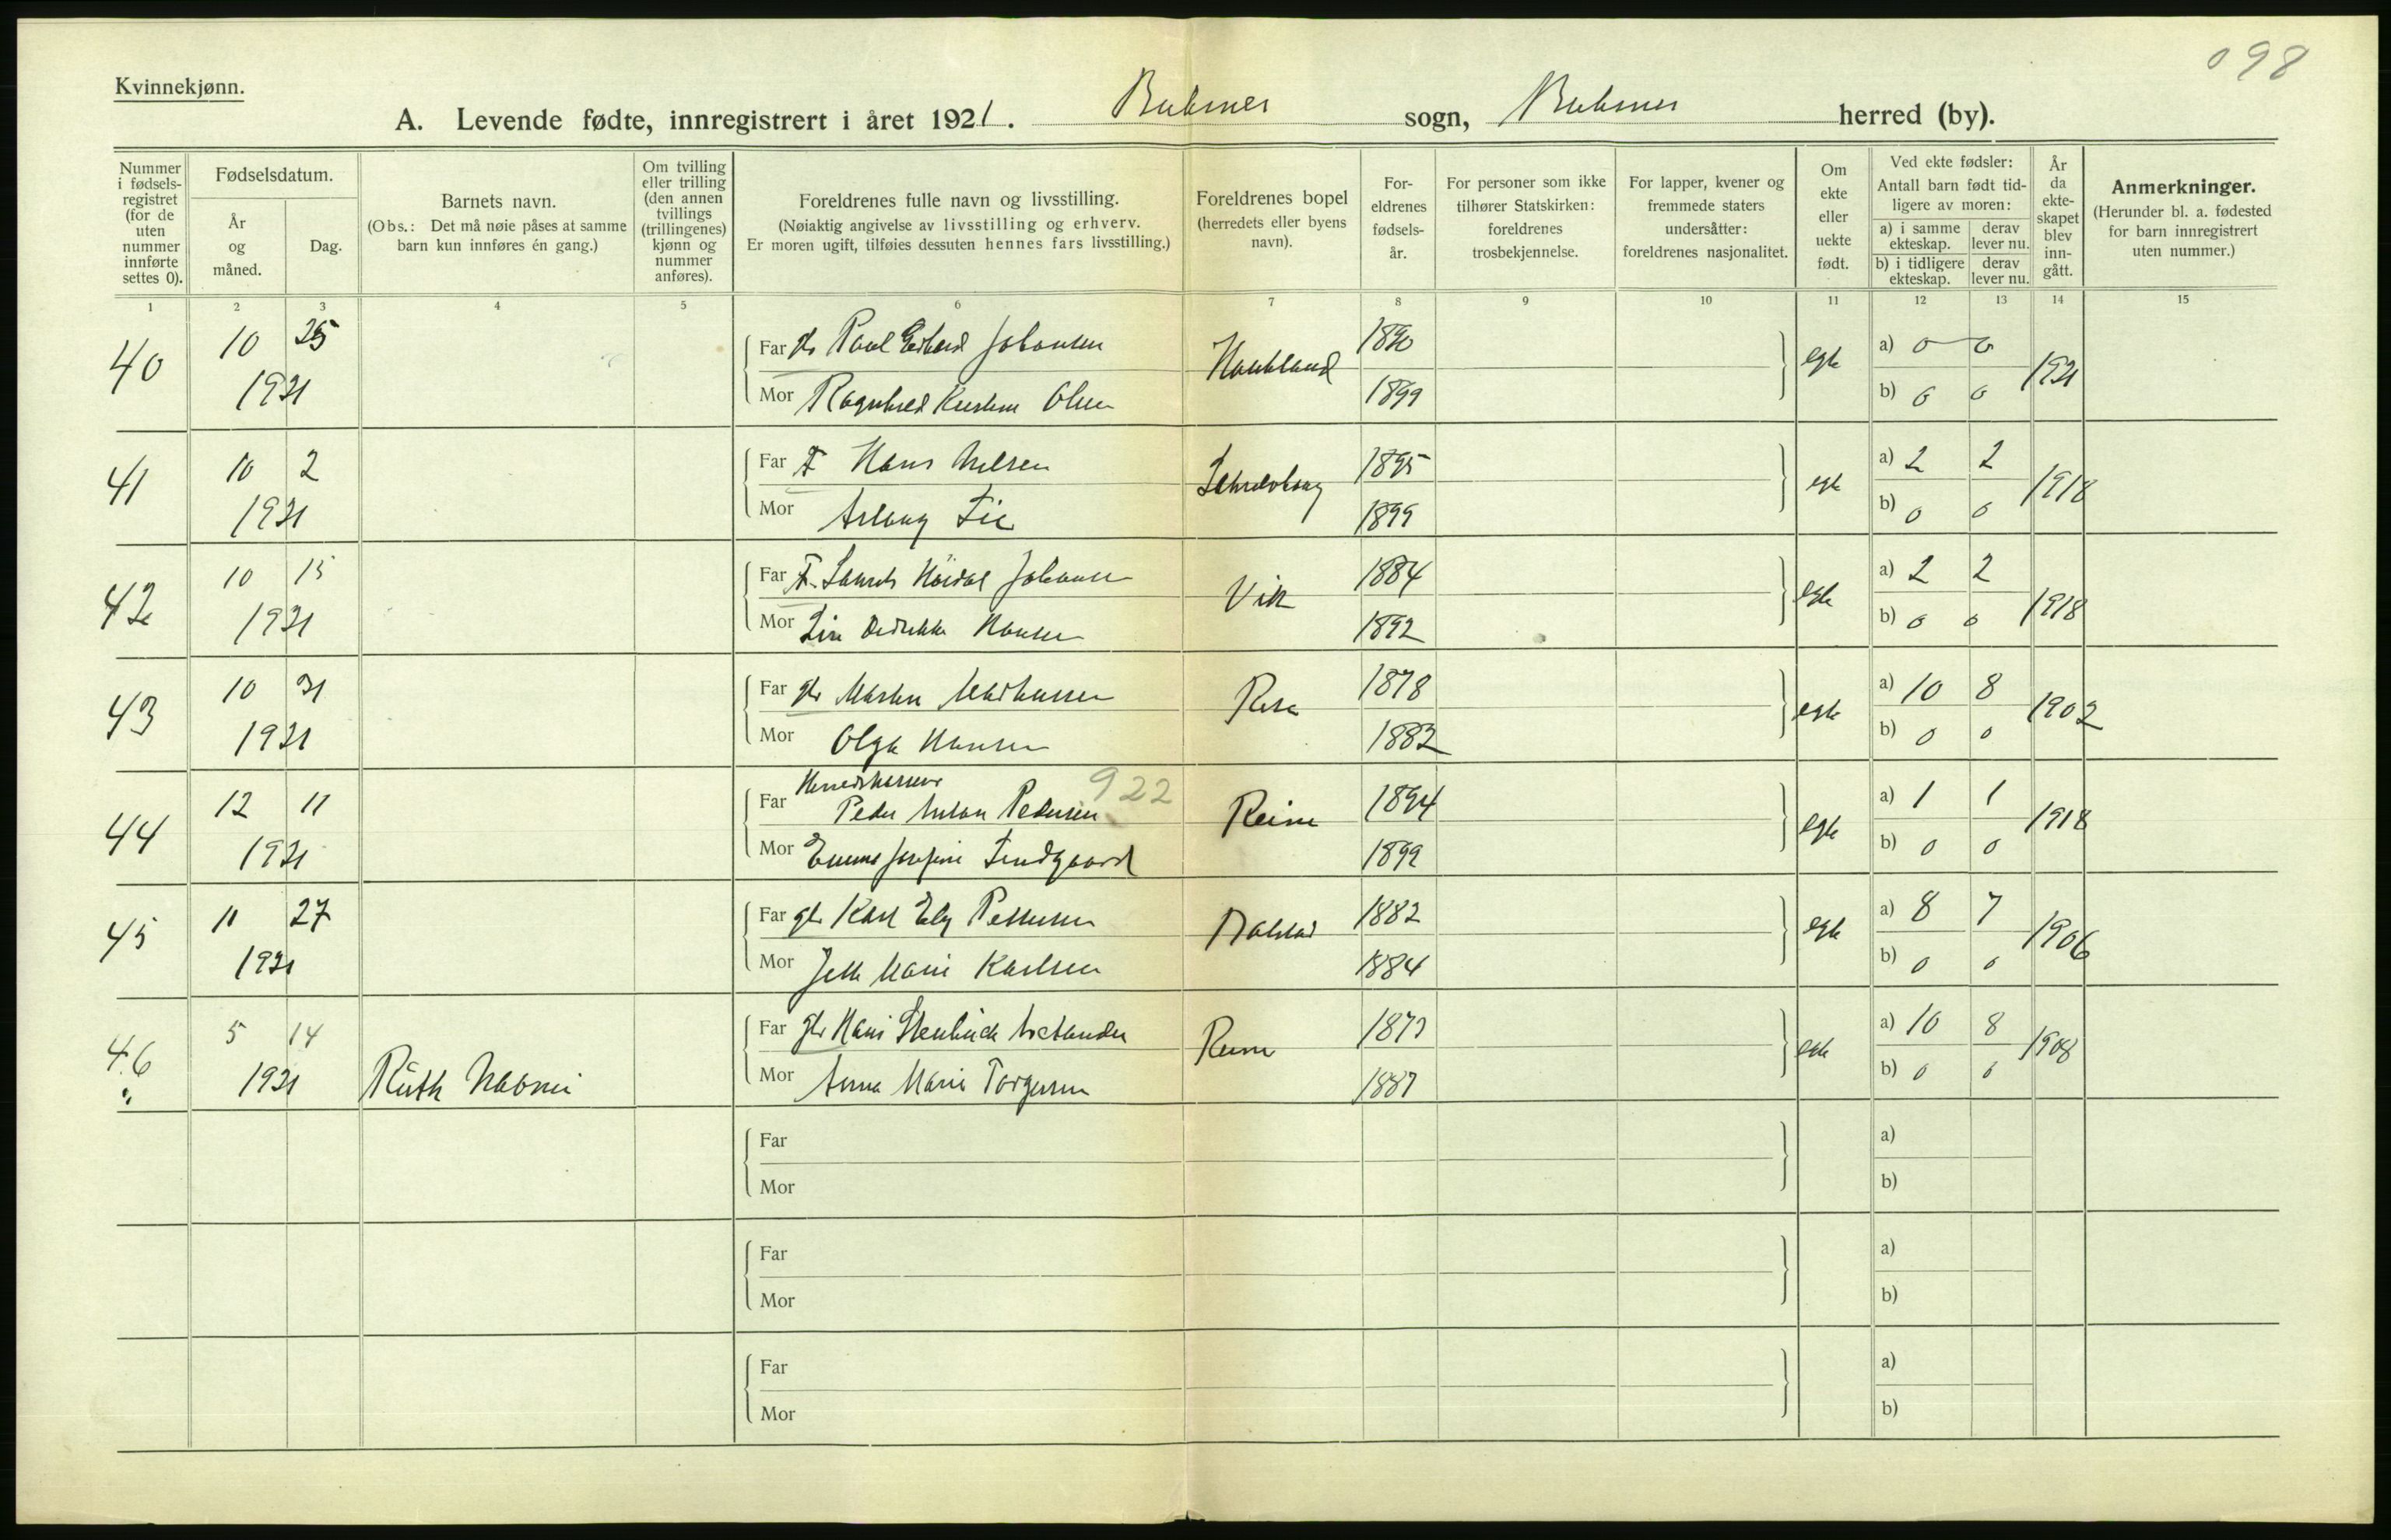 098
Kvinnekjønn.
A. Levende fødte, innregistrert i året 1921. Buksnes sogn, Buksnes herred (by).
Nummer i fødsels-registret (for de uten nummer innførte settes 0).
Fødselsdatum.
År og måned.
Dag.
Barnets navn.
(Obs.: Det må nøie påses at samme barn kun innføres én gang.)
Om tvilling eller trilling (den annen tvillings (trillingenes) kjønn og nummer anføres).
Foreldrenes fulle navn og livsstilling.
(Nøiaktig angivelse av livsstilling og erhverv.
Er moren ugift, tilføies dessuten hennes fars livsstilling.)
Foreldrenes bopel
(herredets eller byens navn).
For-eldrenes fødsels-år.
For personer som ikke tilhører Statskirken: foreldrenes trosbekjennelse.
For lapper, kvener og fremmede staters undersåtter: foreldrenes nasjonalitet.
Om ekte eller uekte født.
Ved ekte fødsler:
Antall barn født tid-ligere av moren:
a) i samme ekteskap.
derav lever nu.
b) i tidligere ekteskap.
derav lever nu.
År da ekte-skapet blev inn-gått.
Anmerkninger.
(Herunder bl. a. fødested for barn innregistrert uten nummer.)
1 2 3 4 5 6 7 8 9 10 11 12 13 14 15
40 10 25 1921
Far Johansen 1890 egte a) 0 0 1921
Mor Olsen 1899 b) 0 0
41 10 2 1921
Far F Hans Nilsen 1895 egte a) 2 2 1918
Mor Aslaug Lie 1899 b) 0 0
42 10 15 1921
Far F. Johansen Vik 1884 egte a) 2 2 1918
Mor Hansen 1892 b) 0 0
43 10 31 1921
Far Markussen 1878 egte a) 10 8 1902
Mor Olga Hansen 1882 b) 0 0
922
44 12 11 1921
Far Herredskasserer
Peder Anton Pedersen Reine 1894 egte a) 1 1 1918
Mor Emma Josefine 1899 b) 0 0
45 11 27 1921
Far Karl Pettersen 1882 egte a) 8 7 1906
Mor Marie Karlsen 1884 b) 0 0
46 5 14 1921 Ruth Naomi
Far Hans Reine egte a) 10 8 1908
Mor Anna Marie Torgersen 1887 b) 0 0
Far a)
Mor b)
Far a)
Mor b)
Far a)
Mor b)